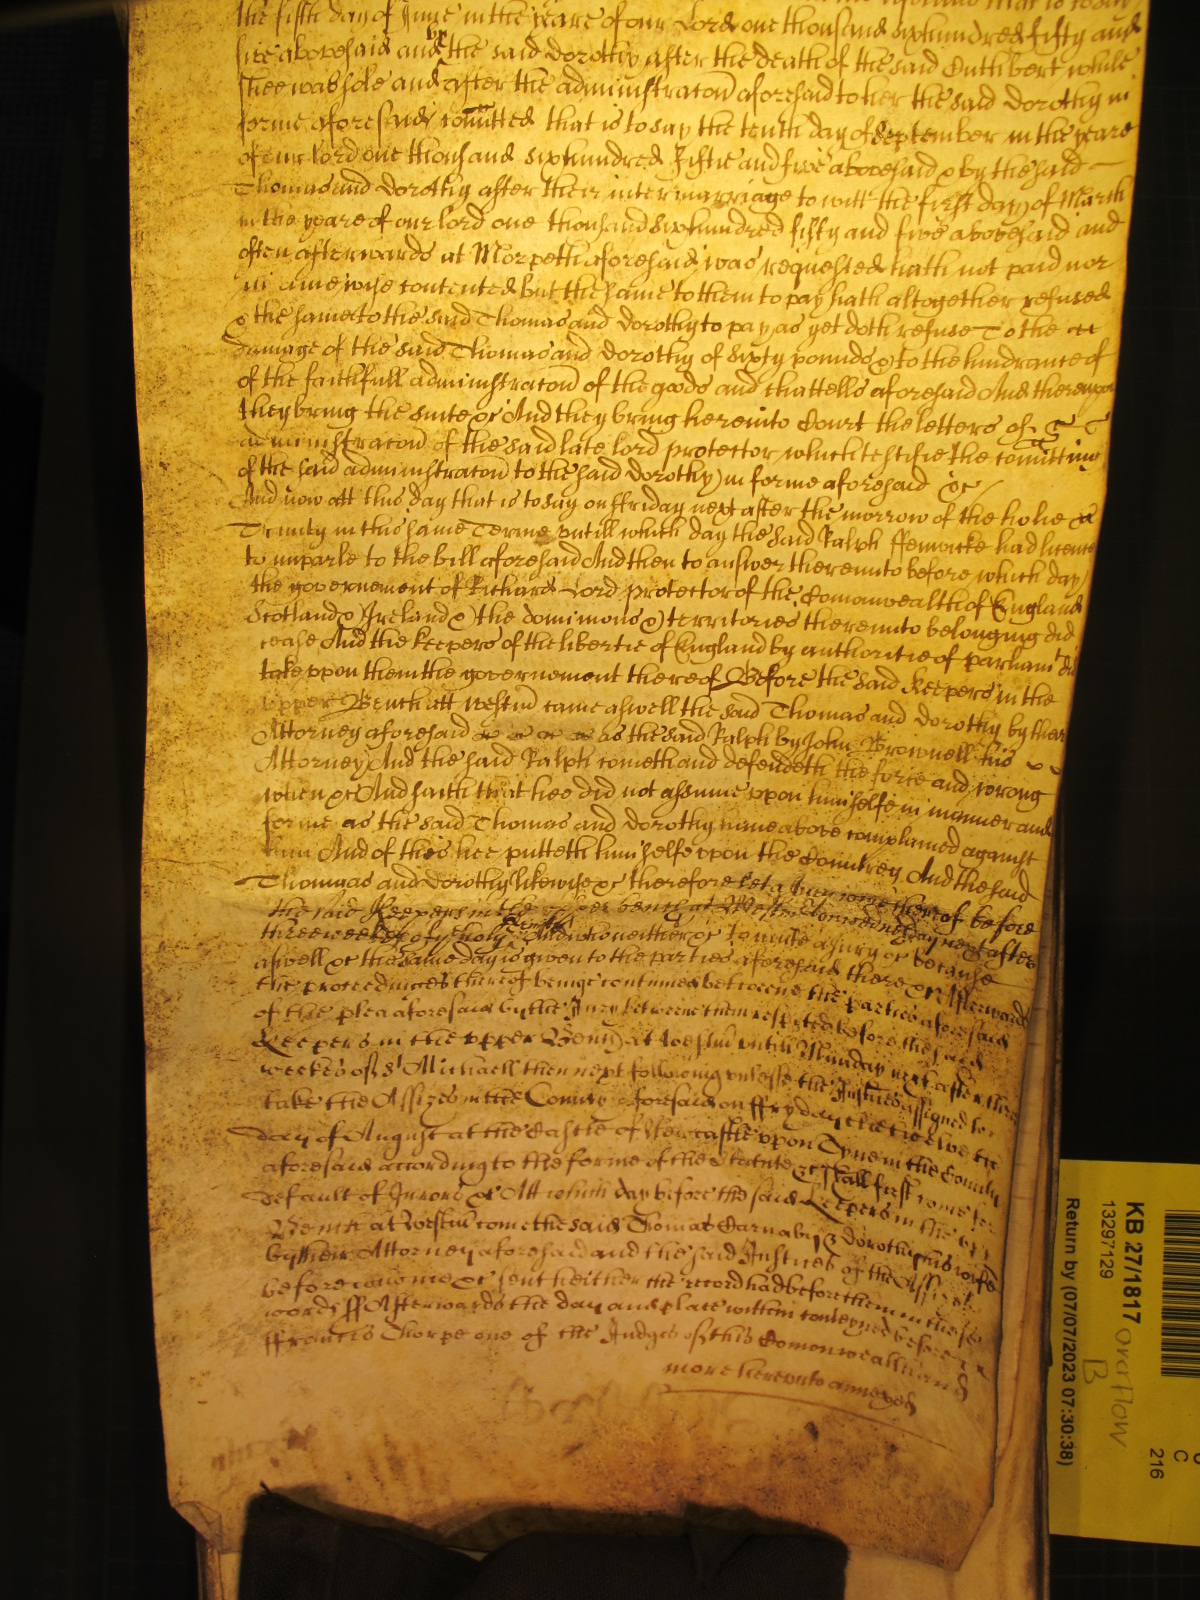 the fifth day of June in the yeare of our Lord one thousand sixhundred fifty and
five abovesaid and by the said Dorothy after the death of the said Cuthbert while
shee was sole and after the administracon aforesaid to her the said Dorothy in
forme aforesaid comitted that is to say the tenth day of September in the yeare
of our lord one thousand sixhundred fiftie and five abovesaid & by the said
Thomas and Dorothy after their intermarriage to witt the first day of March
in the yeare of our lord one thousand sixhundred fifty and five abovesaid and
often afterwards at Morpeth aforesaid was requested hath not paid nor
in anie wise contented but the same to them to pay hath altogether refused
& the same to the said Thomas and Dorothy to pay as yet doth refuse To the
damage of the said Thomas and Dorothy of sixty pounds & to the hindrance of
of the faithfull administracon of the goods and chattells aforesaid And thereupon
they bring the suite &c And they bring here into Court the letters of
administracon of the said late lord protector which testifie the comitting
of the said administracon to the said Dorothy in forme aforesaid &c
And now att this day that is to say on ffriday next after the morrow of the holie
Trinity in this same Terme untill which day the said Ralph ffenwicke had licence
to imparle to the bill aforesaid And then to answer thereunto before which day
the governement of Richard Lord protector of the Comonwealth of England
Scotland & Ireland & the dominions & territories thereunto belonging did
cease And the keepers of the libertie of England by authoritie of parliamt did
take uppon them the governement thereof Before the said Keepers in the
upper Bench att Westm came aswell the said Thomas and Dorothy by their
Attorney aforesaid as the said Ralph by John Brownell his
Attorney And the said Ralph cometh and defendeth the force and wrong
when &c And saith that hee did not assume uppon himselfe in manner and
forme as the said Thomas and Dorothy have above complained against
him And of this hee putteth himselfe upon the Countrey And the said
Thomas and Dorothy likewise &c therefore let a Jury come thereof before
the said Keepers in the upper bench at Westm on wednesday next after
three weekes of ye holy Trinitie And who neither &c to make a Jury &c because
aswell &c the same day is given to the parties aforesaid there &c Afterwards
the proceedinges thereof beinge continued betweene the parties aforesaid
of the plea aforesaid by the Jury betweene them respited before the said
Keepers in the upper Bench at Westm untill Munday next after three
weekes of St Michaell then next following unlesse the Justices assigned to
take the Assizes in the County aforesaid on ffryday the twelveth
day of August at the Castle of Newcastle upon Tyne in the County
aforesaid according to the forme of the Statute &c shall first come for
default of Jurors &c Att which day before the said Keepers in the upper
Bench at Westm come the said Thomas Carnaby & Dorothy his wife
by their Attorney aforesaid and the said Justices of the Assizes
before whome &c sent hether the record had before them in these
words ff Afterwards the day and place within conteyned before
ffrancis Thorpe one of the Judges of this Comonwealth and
more hereunto annexed
KB 27/1817
13297129
Return by (07/07/2023 07:30:38)
overflow
B
C
216